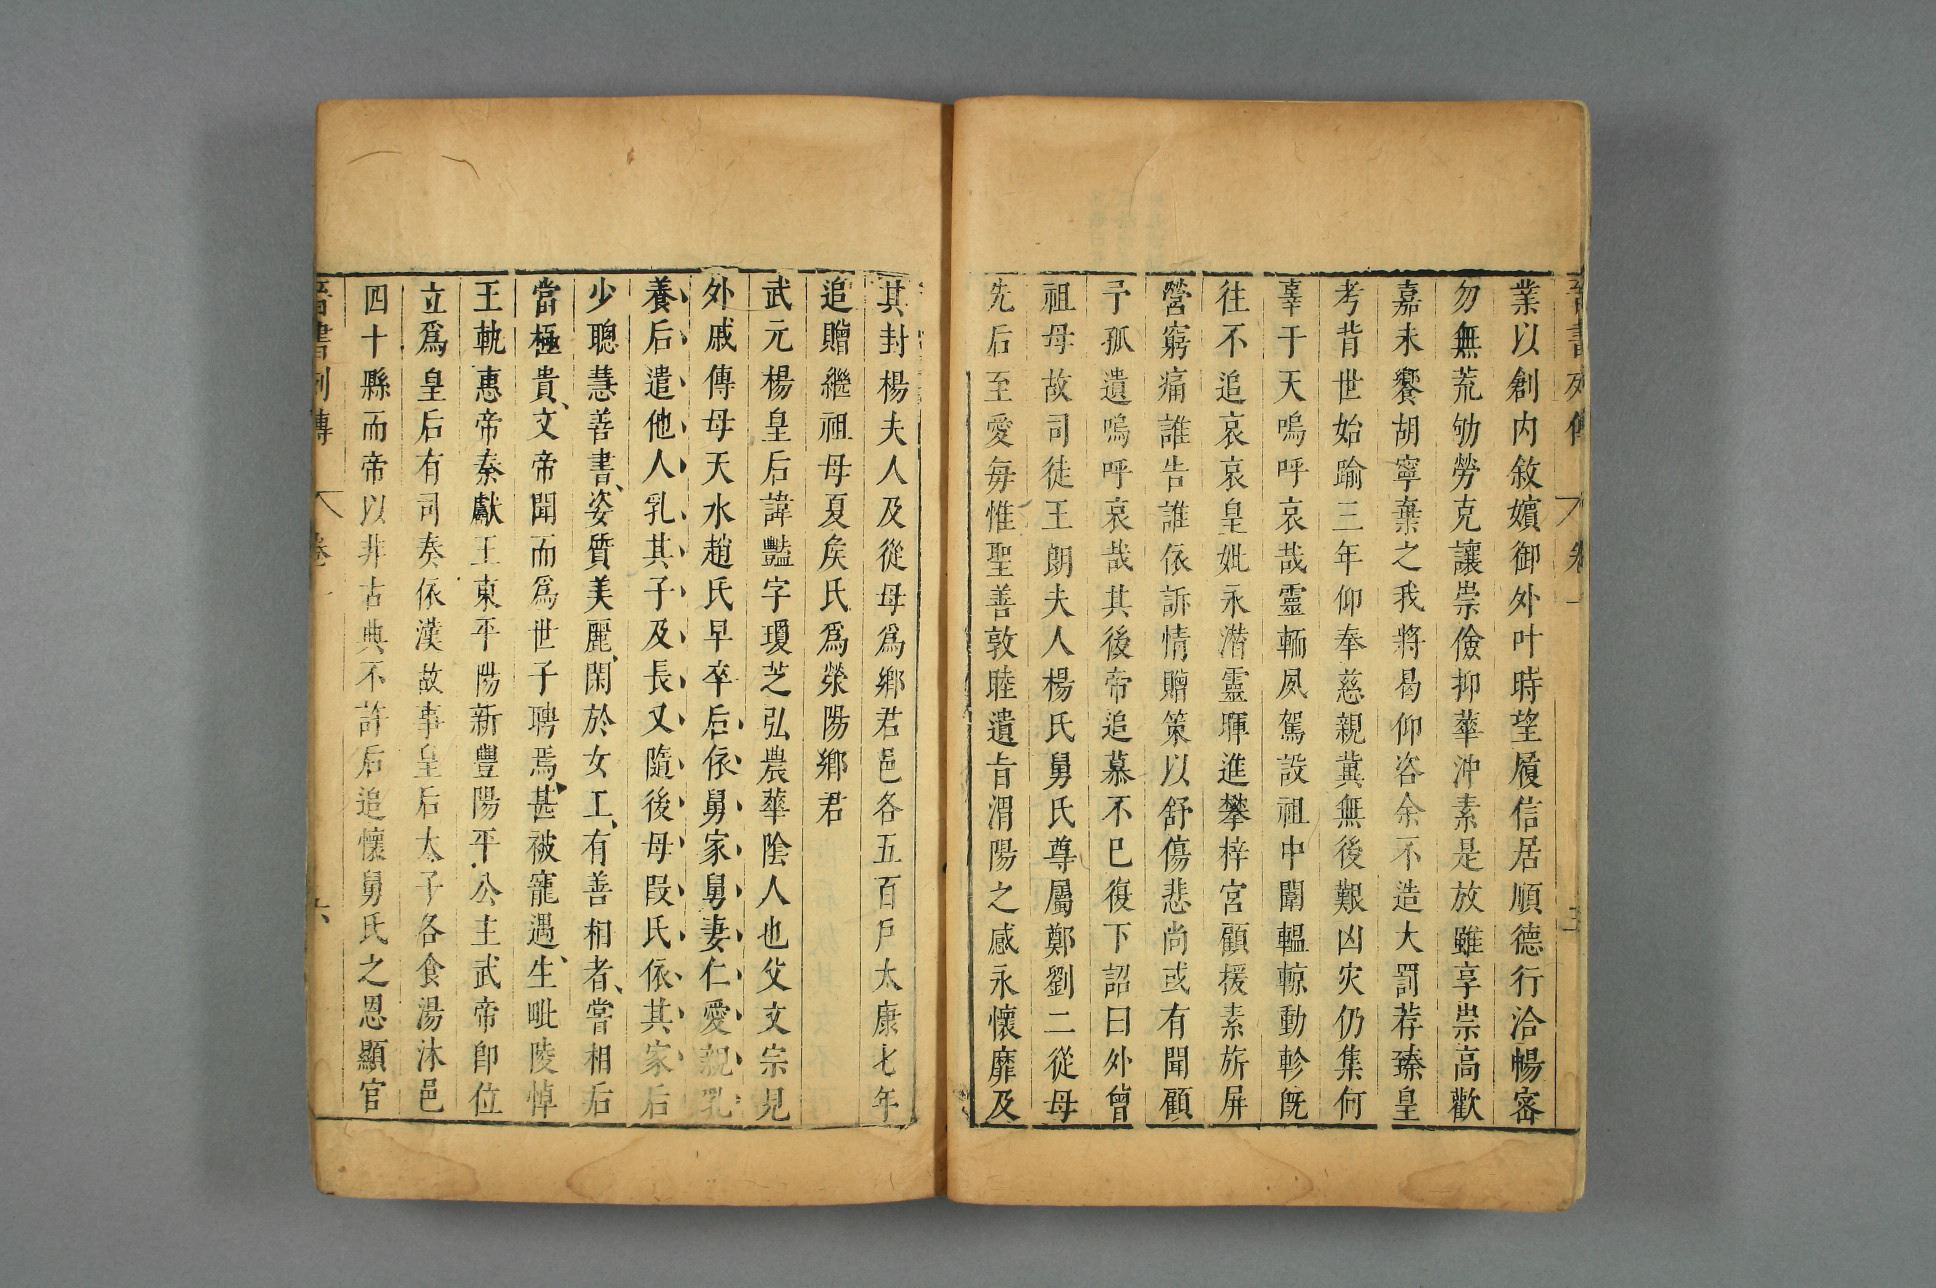 晉書列傳 卷一 五
業以創内敘嬪御外叶時望履信居順德行洽暢密
勿無荒劬勞克讓崇儉抑華沖素是放雖享崇高歡
嘉未饗胡寧棄之我將曷仰咨余不造大罰荐臻皇
考背世始踰三年仰奉慈親冀無後艱凶灾仍集何
辜于天嗚呼哀哉靈輀夙駕設祖中闈轀輬動軫旣
往不追哀哀皇妣永潛靈暉進攀梓宮顧援素旂屏
營窮痛誰告誰依訴情贈策以舒傷悲尚或有聞顧
予孤遺嗚呼哀哉其後帝追慕不已復下詔曰外曾
祖母故司徒王朗夫人楊氏舅氏尊屬鄭劉二從母
先后至愛每惟聖善敦睦遺旨渭陽之感永懷靡及
其封楊夫人及從母爲鄉君邑各五百戶太康七年
追贈繼祖母夏矦氏爲滎陽鄉君
武元楊皇后諱豔字瓊芝弘農華陰人也父文宗見
外戚傳母天水趙氏早卒后依舅家舅妻仁愛親乳
養后遣他人乳其子及長又隨後母段氏依其家后
少聰慧善書、姿質美麗、閑於女工、有善相者、嘗相后
當極貴、文帝聞而爲世子聘焉、甚被寵遇、生毗陵悼
王軌惠帝秦獻王東平陽新豐陽平公主武帝卽位
立爲皇后有司奏依漢故事皇后太子各食湯沐邑
四十縣而帝以非古典不許后追懷舅氏之恩顯官
晉書列傳 卷一 六